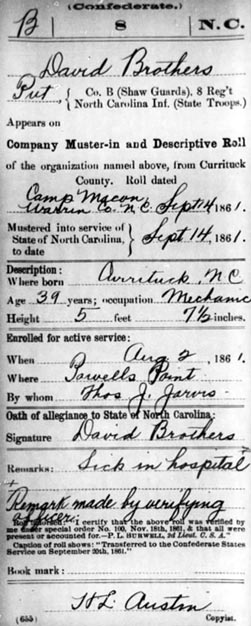 (Confederate.)
B | 8 | N.C.
David Brothers
Pvt, { Co. B (Shaw Guards), 8 Reg't
North Carolina Inf. (State Troops.)
Appears on
Company Muster-in and Descriptive Roll
of the organization named above, from Currituck
County. Roll dated
Camp Macon
Warren Co. N.C. Sept 14, 1861.
Mustered into service of
State of North Carolina, } Sept 14, 1861.
to date
Description:
Where born Currituck, N.C
Age 39 years; occupation Mechanic
Height 5 feet 7½ inches.
Enrolled for active service:
When Aug 2, 1861.
Where Powells Point
By whom Thos. J. Jarvis
Oath of allegiance to State of North Carolina:
Signature David Brothers
Remarks: Sick in hospital
+
Remark made by verifying
officer.
I certify that the above roll was verified by
me under special order No. 100, Nov. 18th, 1861, & that all were
present or accounted for.—P. L. BURWELL, 2d Lieut. C. S. A."
Caption of roll shows: "Transferred to the Confederate States
Service on September 20th, 1861."
Book mark:
H L. Austin
(635) Copyist.